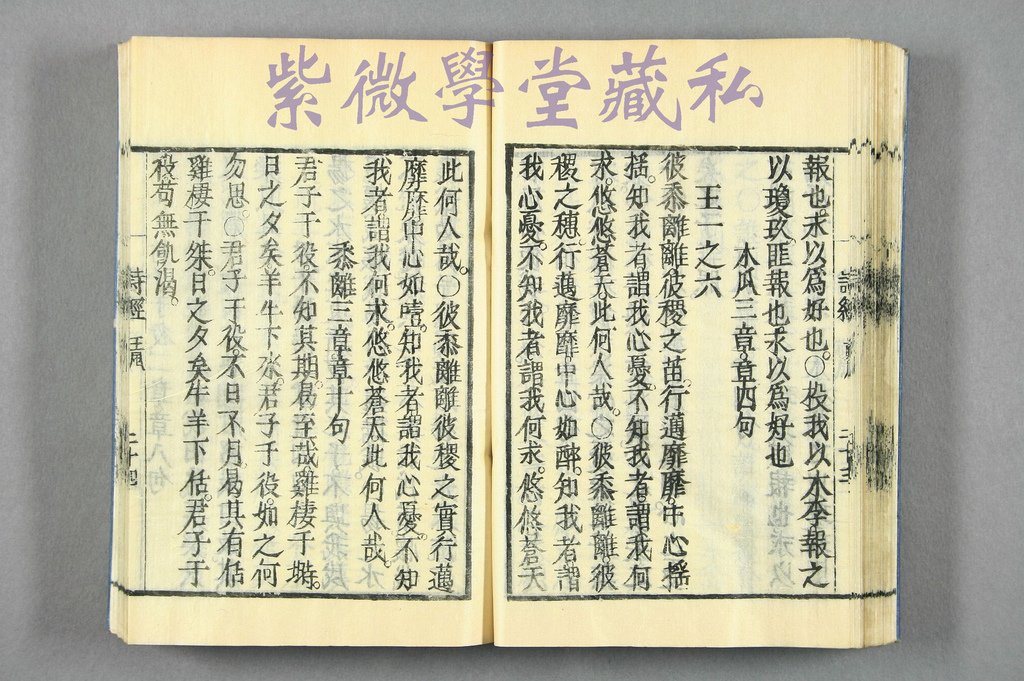 紫微學堂藏私
報也永以爲好也○投我以木李報之
以瓊玖匪報也永以爲好也
木瓜三章章四句
王一之六
彼黍離離彼稷之苗行邁靡靡中心搖
搖知我者謂我心憂不知我者謂我何
求悠悠蒼天此何人哉○彼黍離離彼
稷之穗行邁靡靡中心如醉知我者謂
我心憂不知我者謂我何求悠悠蒼天
詩經
二十三
此何人哉○彼黍離離彼稷之實行邁
靡靡中心如噎知我者謂我心憂不知
我者謂我何求悠悠蒼天此何人哉
黍離三章章十句
君子于役不知其期曷至哉雞棲于塒
日之夕矣羊牛下來君子于役如之何
勿思○君子于役不日不月曷其有佸
雞棲于桀日之夕矣牛羊下佸君子于
役苟無飢渴
詩經 王風 二十四